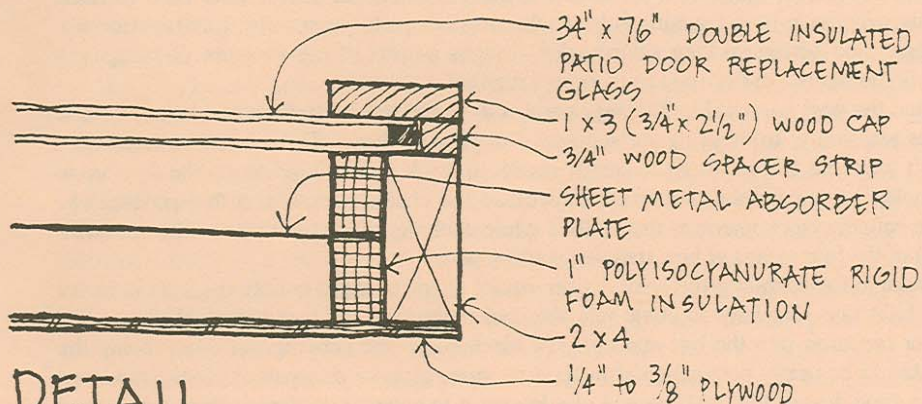 34" x 76" DOUBLE INSULATED
PATIO DOOR REPLACEMENT
GLASS
1 x 3 (3/4" x 2 1/2") WOOD CAP
3/4" WOOD SPACER STRIP
SHEET METAL ABSORBER
PLATE
1" POLYISOCYANURATE RIGID
FOAM INSULATION
2 x 4
1/4" to 3/8" PLYWOOD
DETAIL